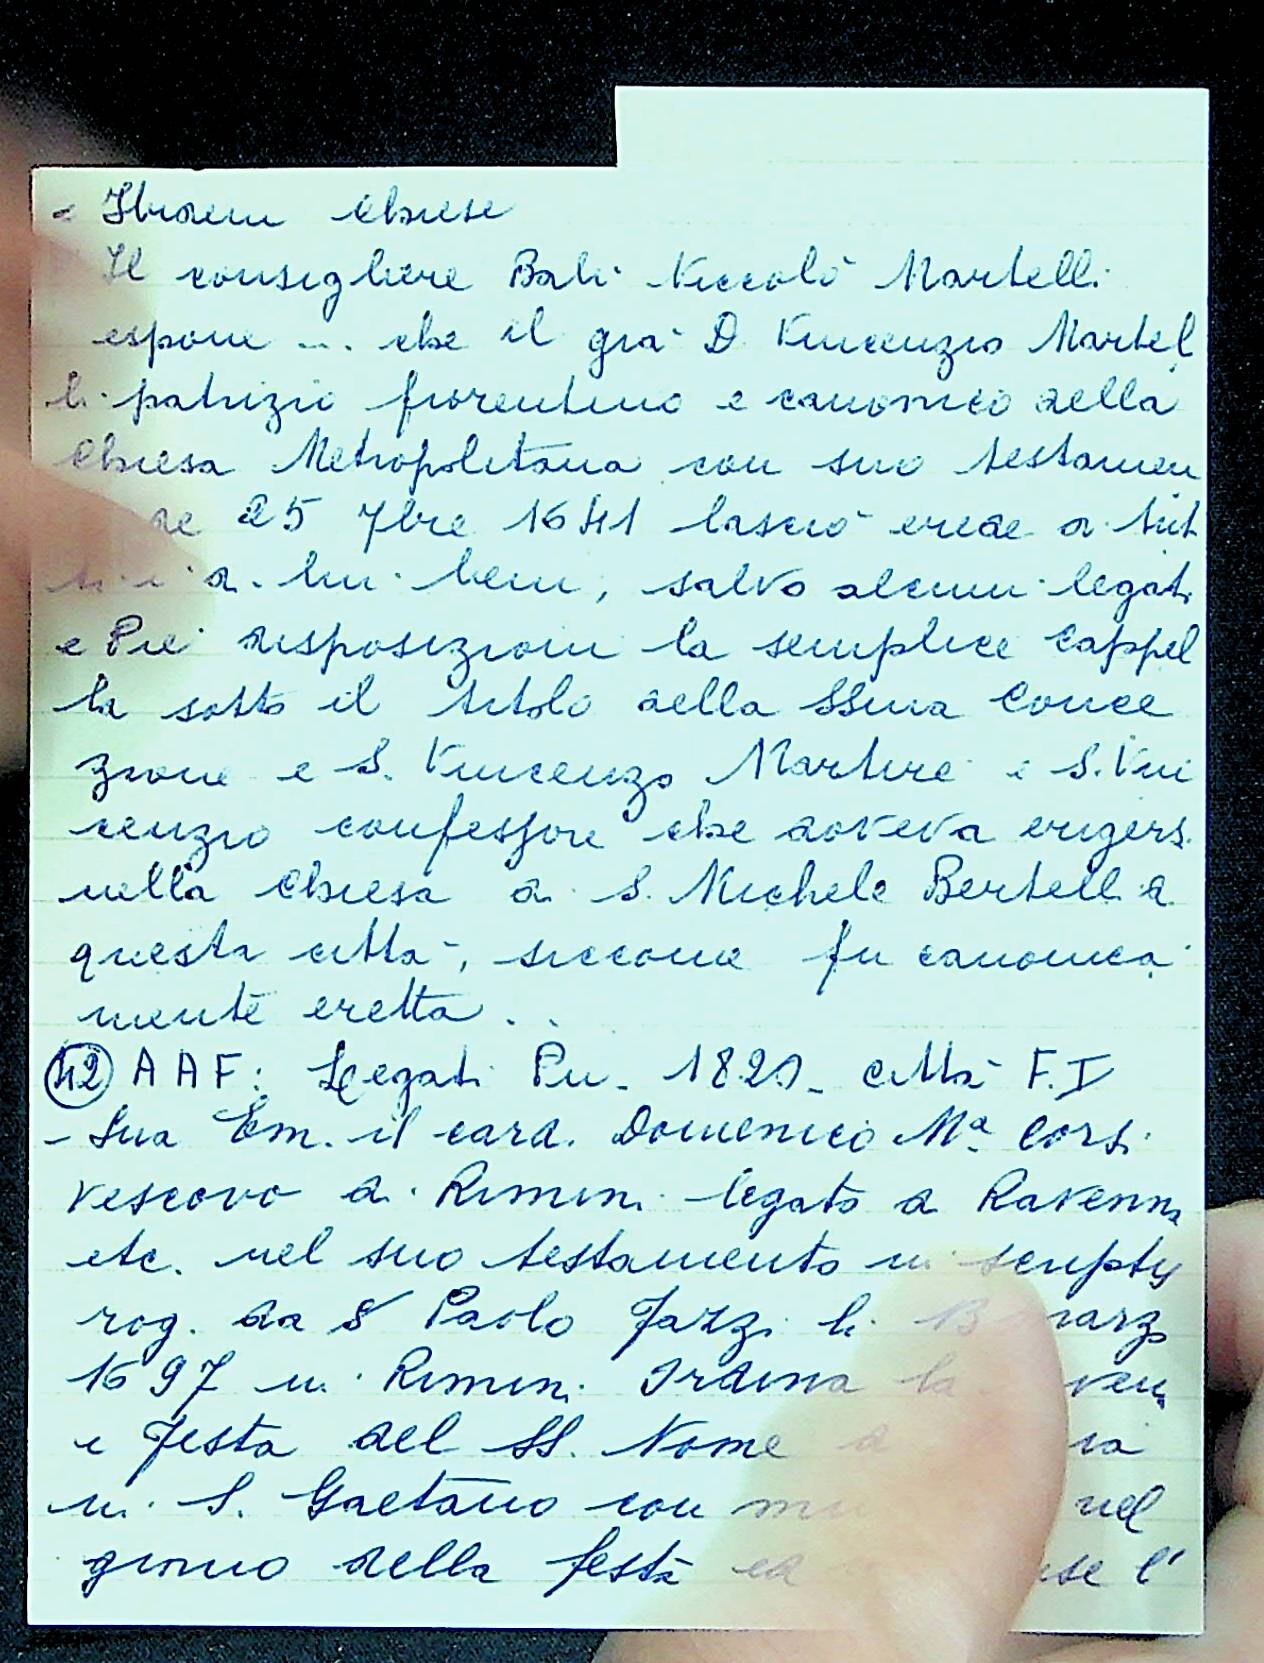 e Ibidem Chiese
Il consigliere Balì Niccolò Martelli
espone ... che il già D Vincenzio Martel
li patrizio fiorentino e canonico della
Chiesa Metropolitana con suo testamen
de 25 7bre 1641 lasciò erede a tut
ti i di lui beni, salvo alcuni legati
e Pie disposizioni la semplice Cappel
la sotto il titolo della SSma Conce
zione e S. Vincenzo Martire e S. Vin
cenzio confessore che doveva erigersi
nella Chiesa di S. Michele Bertelli di
questa città, siccome fu canonica
mente eretta ..
(42) AAF: Legati Pii - 1820 - città F. I
- Sua Em. il card. Domenico Mª Corsi
Vescovo di Rimini legato di Ravenna
etc. nel suo testamento in scriptis
rog. da S Paolo Fazzi li 13 marzo
1697 in Rimini. Ordina la
e festa del SS. Nome di
in S. Gaetano con nel
giorno della festa ed l'